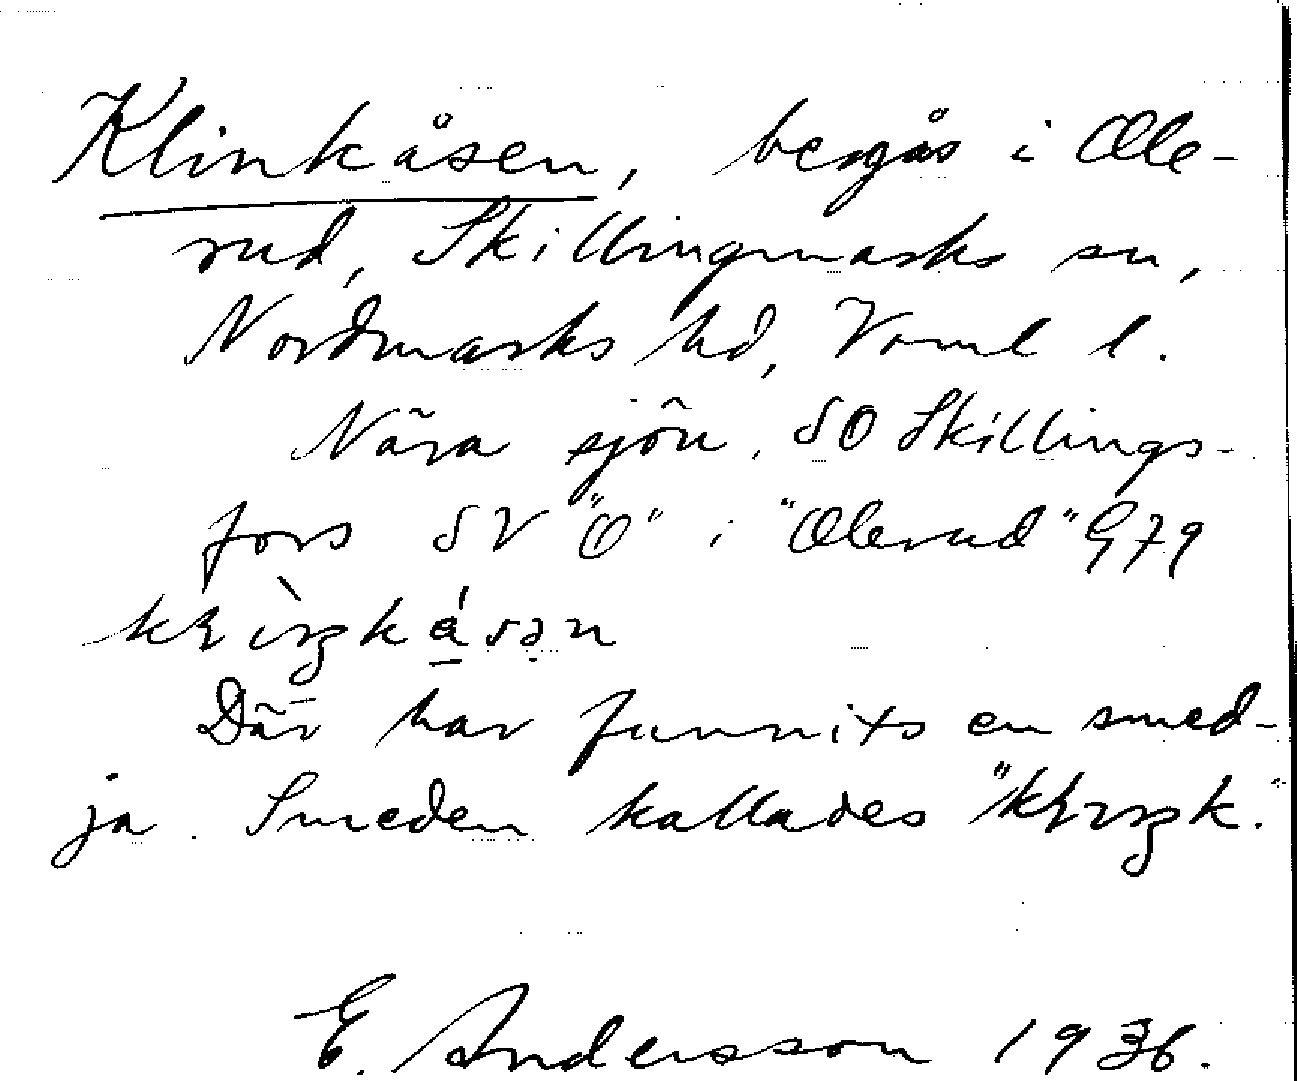 Klinkåsen, bergås i Ole-
rud, Skillingmarks sn,
Nordmarks hd, Värml l.
Nära sjön, SO Skillings-
fors SV "O" i "Olerud" G79
Där har funnits en smed-
ja. Smeden kallades
E. Andersson 1936.